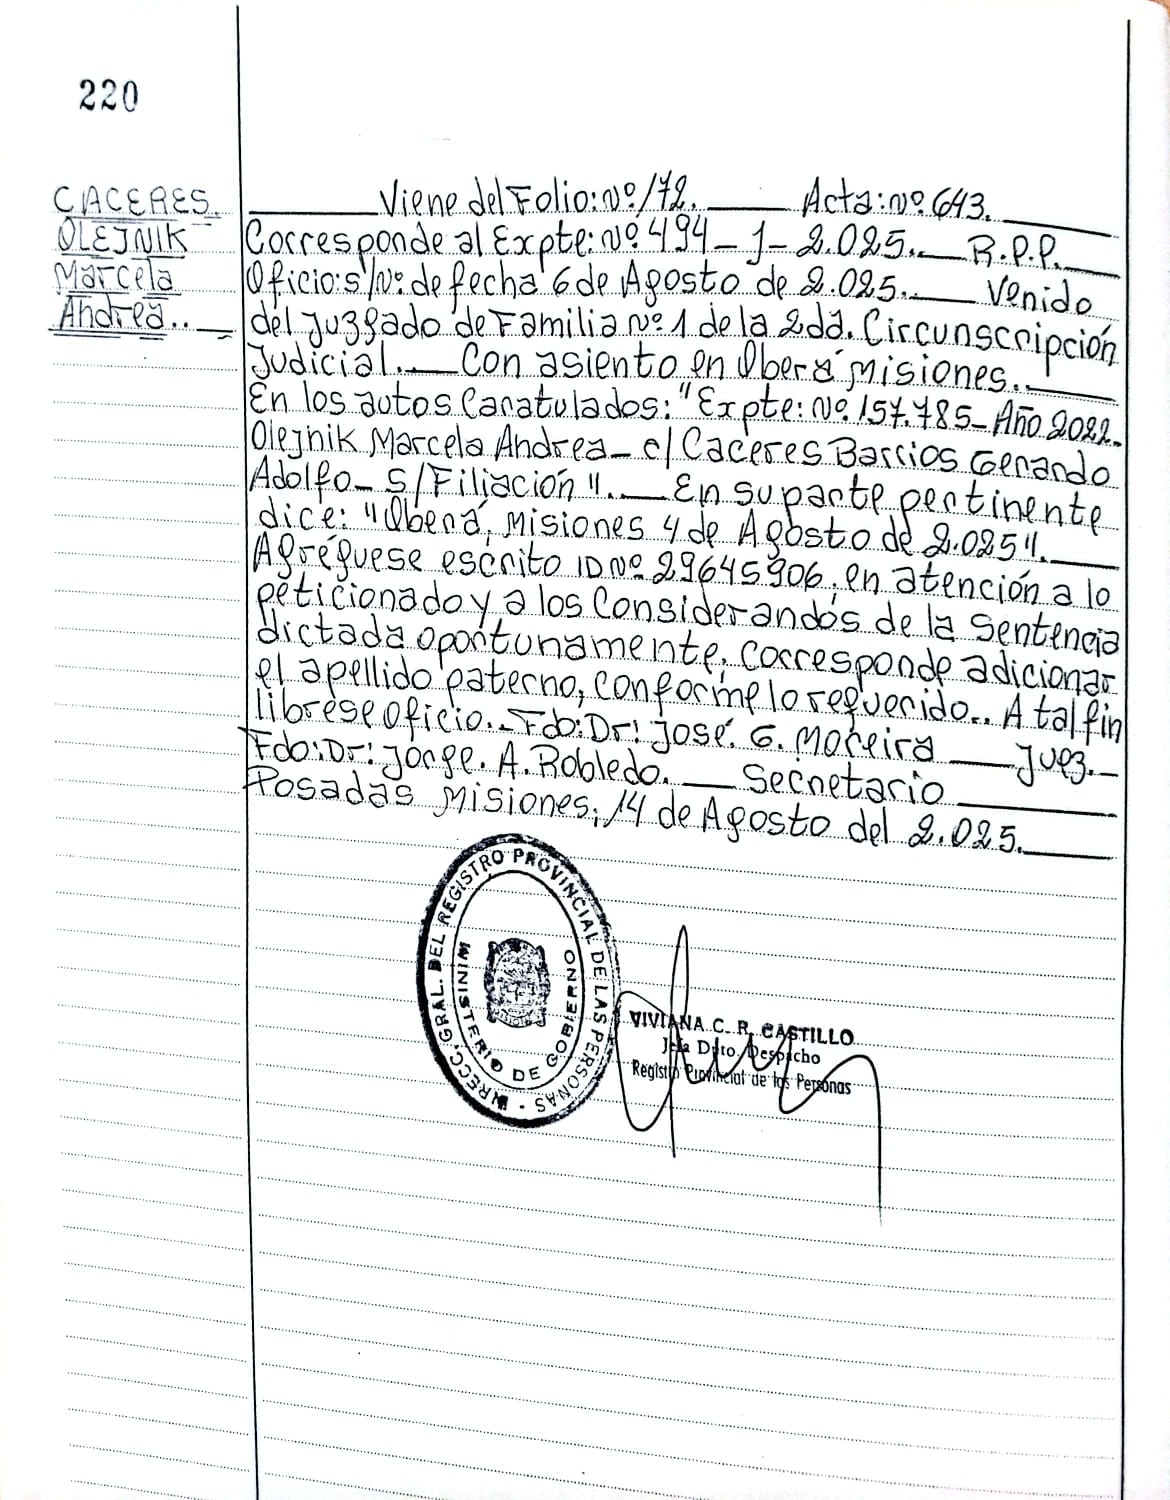 220
CACERES.
OLEJNIK
Marcela
Andrea..
Viene del Folio: Nº 172. Acta: Nº 643.
Corresponde al Expte: Nº 494 - 1 - 2.025. R.P.P.
Oficio: s/Nº: de fecha 6 de Agosto de 2.025. Venido
del Juzgado de Familia Nº 1 de la 2da. Circunscripción
Judicial. Con asiento en Oberá Misiones.
En los autos Caratulados: "Expte: Nº 157.785 - Año 2022.
Olejnik Marcela Andrea - c/ Caceres Barrios Gerardo
Adolfo - S/Filiación". En su parte pertinente
dice: "Oberá, Misiones 4 de Agosto de 2.025".
Agréguese escrito ID Nº 29645906, en atención a lo
peticionado y a los Considerandos de la Sentencia
dictada oportunamente, corresponde adicionar
el apellido paterno, conforme lo requerido.. A tal fin
librese oficio.. Fdo: Dr: José. G. Moreira Juez.
Fdo: Dr: Jorge. A. Robledo. Secretario
Posadas Misiones; 14 de Agosto del 2.025.
DIRECC. GRAL. DEL REGISTRO PROVINCIAL DE LAS PERSONAS -
MINISTERIO DE GOBIERNO
VIVIANA C. R. CASTILLO
Jefa Dpto. Despacho
Registro Provincial de las Personas